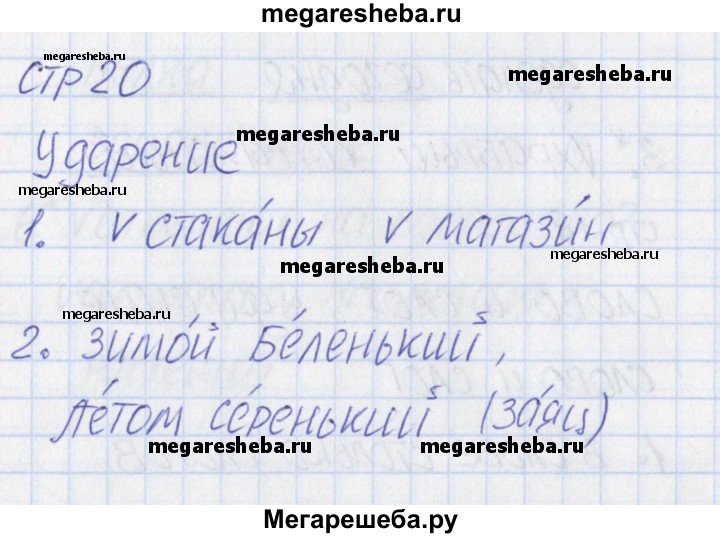 megaresheba.ru
megaresheba.ru
стр 20
megaresheba.ru
Ударение
megaresheba.ru
megaresheba.ru
1. v стака́ны v магази́н
megaresheba.ru
megaresheba.ru
megaresheba.ru
2. зимо́й Бе́ленький,
ле́том се́ренький (за́яц)
megaresheba.ru
megaresheba.ru
Мегарешеба.ру